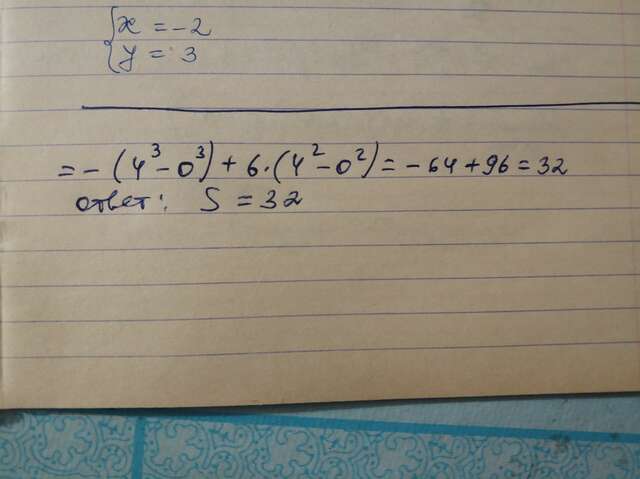 {x = -2
{y = 3
= - (4³ - 0³) + 6 · (4² - 0²) = - 64 + 96 = 32
ответ: S = 32